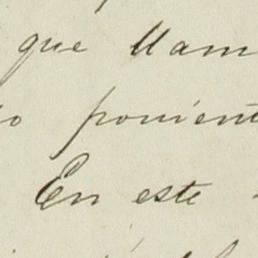 que llam
o ponient
En este